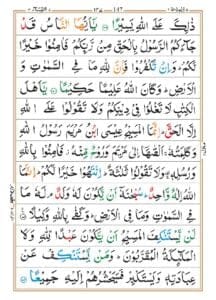 ذٰلِكَ عَلَى اللّٰهِ يَسِيْرًا ۝ يٰۤاَيُّهَا النَّاسُ قَدْ
جَآءَكُمُ الرَّسُوْلُ بِالْحَقِّ مِنْ رَّبِّكُمْ فَاٰمِنُوْا خَيْرًا
لَّكُمْ ؕ وَاِنْ تَكْفُرُوْا فَاِنَّ لِلّٰهِ مَا فِى السَّمٰوٰتِ وَ
الْاَرْضِ ؕ وَكَانَ اللّٰهُ عَلِيْمًا حَكِيْمًا ۝ يٰۤاَهْلَ
الْكِتٰبِ لَا تَغْلُوْا فِىْ دِيْنِكُمْ وَلَا تَقُوْلُوْا عَلَى اللّٰهِ
اِلَّا الْحَقَّ ؕ اِنَّمَا الْمَسِيْحُ عِيْسَى ابْنُ مَرْيَمَ رَسُوْلُ اللّٰهِ
وَكَلِمَتُهٗ ۚ اَلْقٰىهَاۤ اِلٰى مَرْيَمَ وَرُوْحٌ مِّنْهُ ؗ فَاٰمِنُوْا بِاللّٰهِ
وَرُسُلِهٖ ۚ وَلَا تَقُوْلُوْا ثَلٰثَةٌ ؕ اِنْتَهُوْا خَيْرًا لَّكُمْ ؕ اِنَّمَا
اللّٰهُ اِلٰهٌ وَّاحِدٌ ؕ سُبْحٰنَهٗۤ اَنْ يَّكُوْنَ لَهٗ وَلَدٌ ۘ لَهٗ مَا
فِى السَّمٰوٰتِ وَمَا فِى الْاَرْضِ ؕ وَكَفٰى بِاللّٰهِ وَكِيْلًا ۝
لَنْ يَّسْتَنْكِفَ الْمَسِيْحُ اَنْ يَّكُوْنَ عَبْدًا لِّلّٰهِ وَلَا
الْمَلٰٓئِكَةُ الْمُقَرَّبُوْنَ ؕ وَمَنْ يَّسْتَنْكِفْ عَنْ
عِبَادَتِهٖ وَيَسْتَكْبِرْ فَسَيَحْشُرُهُمْ اِلَيْهِ جَمِيْعًا ۝